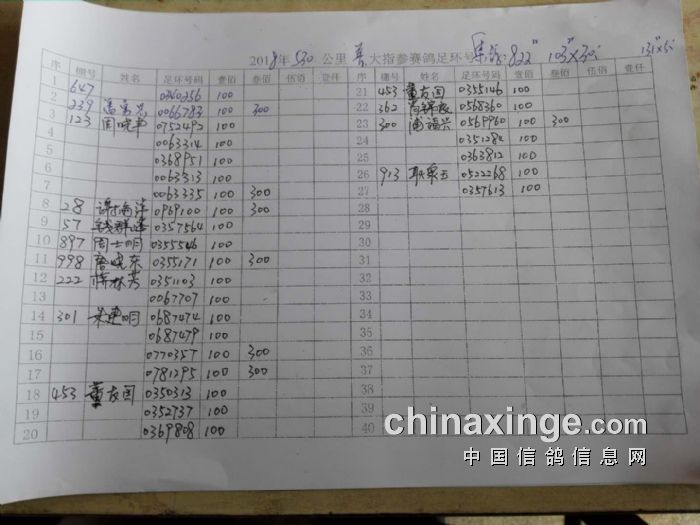 2018年530公里 大指参赛鸽足环号 822" 103"×30" 131"×5"
序 棚号 姓名 足环号码 壹佰 叁佰 伍佰 壹仟
序 棚号 姓名 足环号码 壹佰 叁佰 伍佰 壹仟
1 647
2 0340256 100
3 239 0066783 100 300
123 周晓 0752492 100
4 0063314 100
5 0368951 100
6 0063313 100
7 0063335 100 300
8 28 谢 0969100 100 300
9 57 钱群 0357564 100
10 897 周士明 0355546 100
11 998 晓东 0355171 100 300
12 222 蒋林芳 0351103 100
13 0067707 100
14 301 朱建明 0687474 100
15 0687479 100
16 0770357 100 300
17 0781295 100 300
18 453 董友国 0350313 100
19 0352737 100
20 0369808 100
21 453 董友国 0355146 100
22 362 0568360 100
23 300 兴 0569960 100 300
24 0351284 100
25 0363812 100
26 913 0522268 100
27 0357613 100
28
29
30
31
32
33
34
35
36
37
38
39
40
chinaxinge.com
中国信鸽信息网